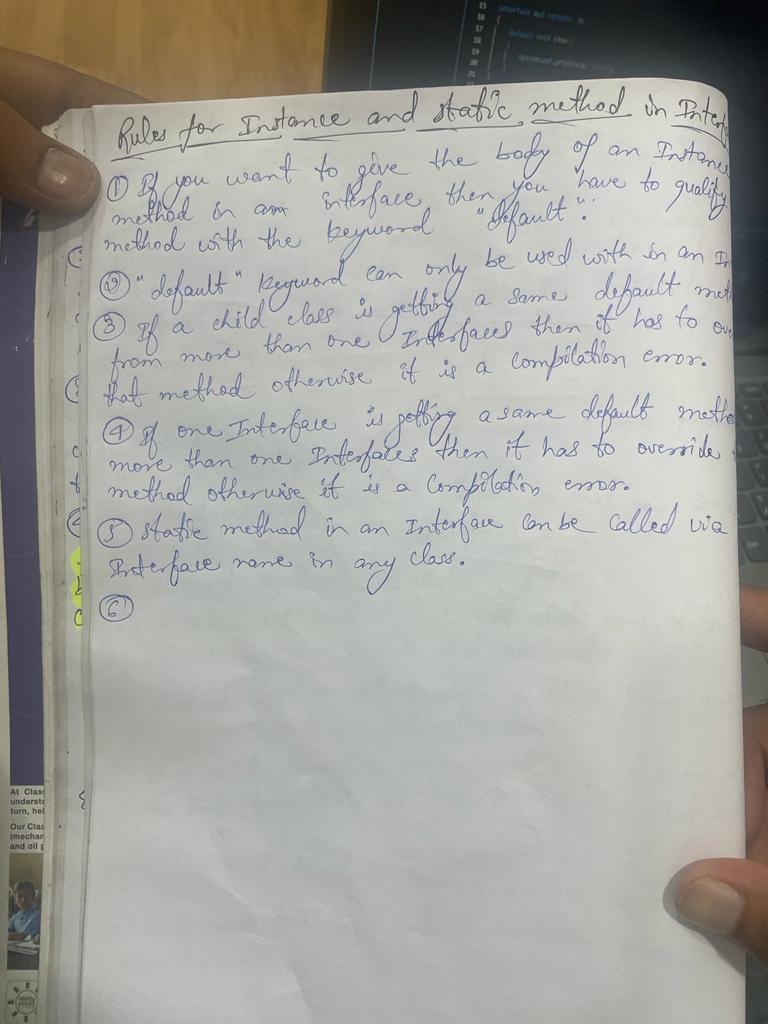 interface my2 extends my
{
default void show()
{
System.out.println(
Rules for Instance and static method in Interf
① If you want to give the body of an Instance
method in an interface then you have to qualify
method with the keyword "default".
② "default" keyword can only be used with in an In
③ If a child class is getting a same default met
from more than one Interfaces then it has to ove
that method otherwise it is a compilation error.
④ If one Interface is getting a same default metho
more than one Interfaces then it has to override
method otherwise it is a Compilation error.
⑤ static method in an Interface can be called via
Interface name in any class.
⑥
At Clas
underst
turn, hel
Our Clas
(mechan
and oil p